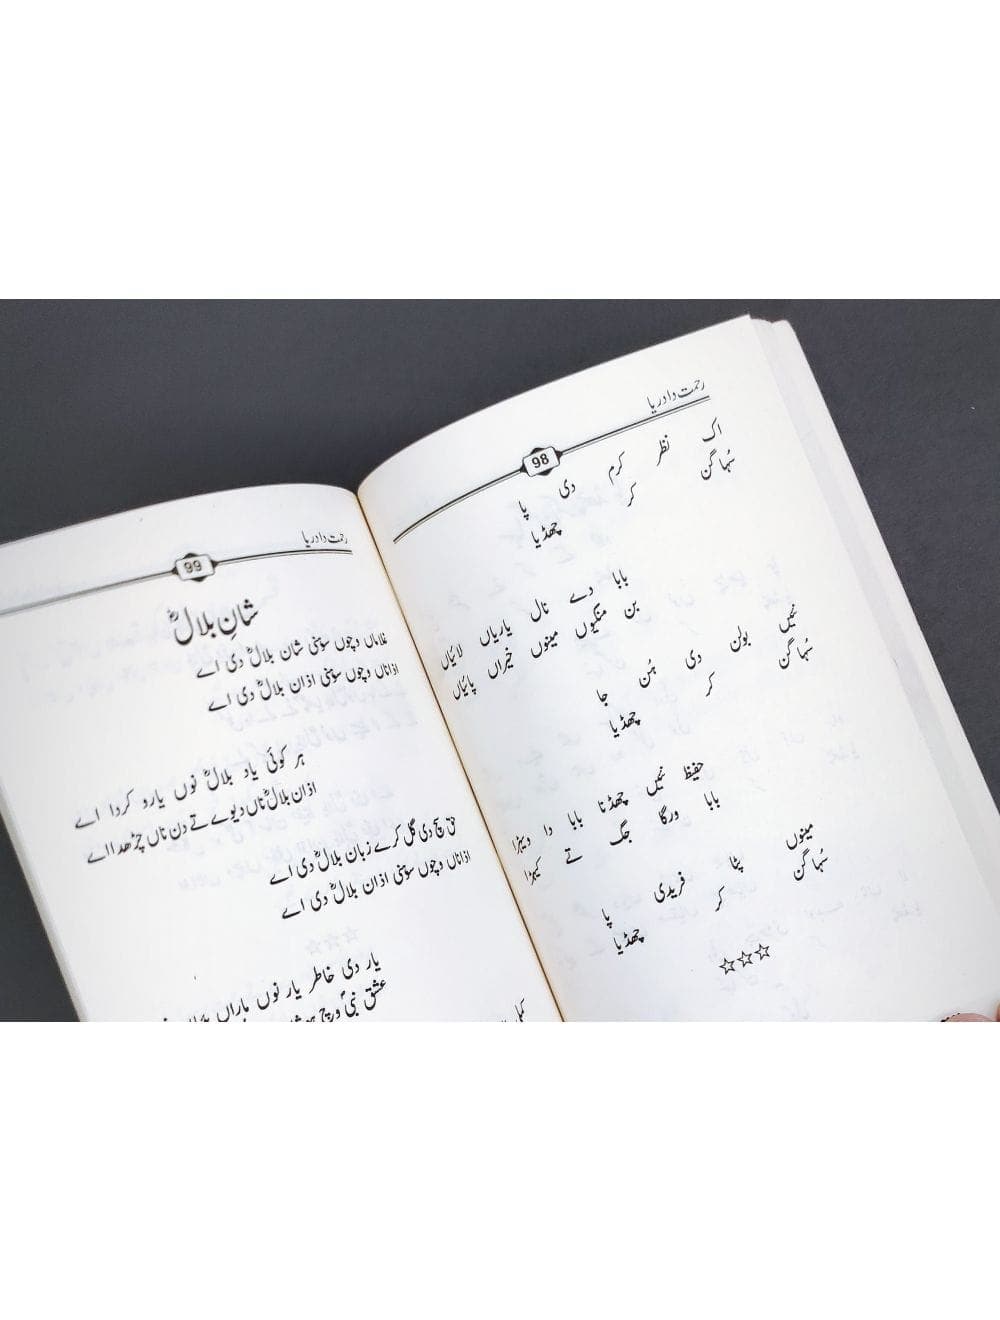 رحمت دا دریا
98
اک نظر کرم دی پا
سُہاگن کر چھڈیا
بابا دے نال یاریاں لائیاں
بن منگیوں مینوں خیراں پائیاں
نئیں بولن دی ہُن جا
سُہاگن کر چھڈیا
حفیظ نئیں چھڈنا بابا دا ویہڑا
بابا ورگا جگ تے کیہڑا
مینوں پٹا فریدی پا
سُہاگن کر چھڈیا
☆☆☆
رحمت دا دریا
99
شانِ بلالؓ
غلاماں وچوں سوہنی شان بلالؓ دی اے
اذاناں وچوں سوہنی اذان بلالؓ دی اے
ہر کوئی یاد بلالؓ نوں یارو کردا اے
اذان بلالؓ ناں دیوے تے دن ناں چڑھدا اے
حق سچ دی گل کرے زبان بلالؓ دی اے
اذاناں وچوں سوہنی اذان بلالؓ دی اے
یار دی خاطر یار نوں ماراں
عشق نبیؐ وچ